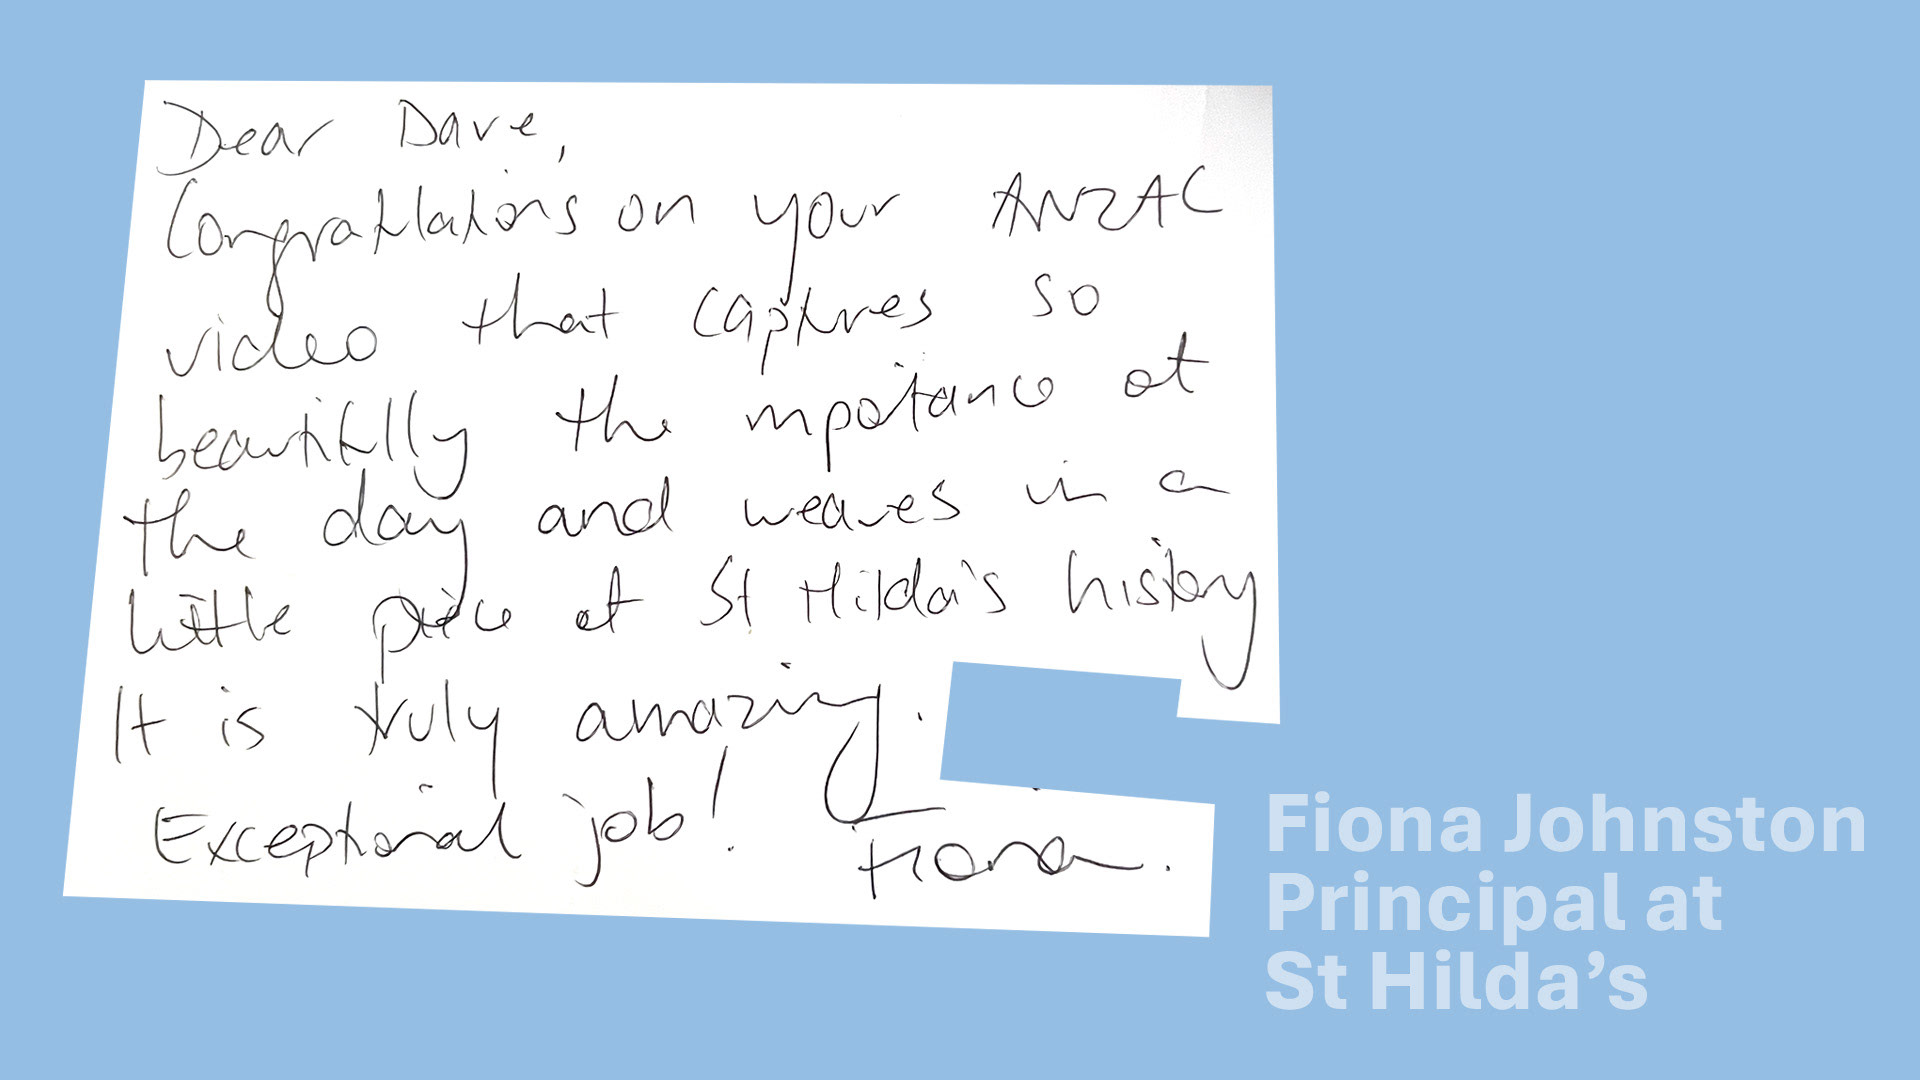 Dear Dave,
Congratulations on your ANZAC
video that captures so
beautifully the importance of
the day and weaves in a
little piece of St Hilda's history
It is truly amazing.
Exceptional job! Fiona.
Fiona Johnston
Principal at
St Hilda’s